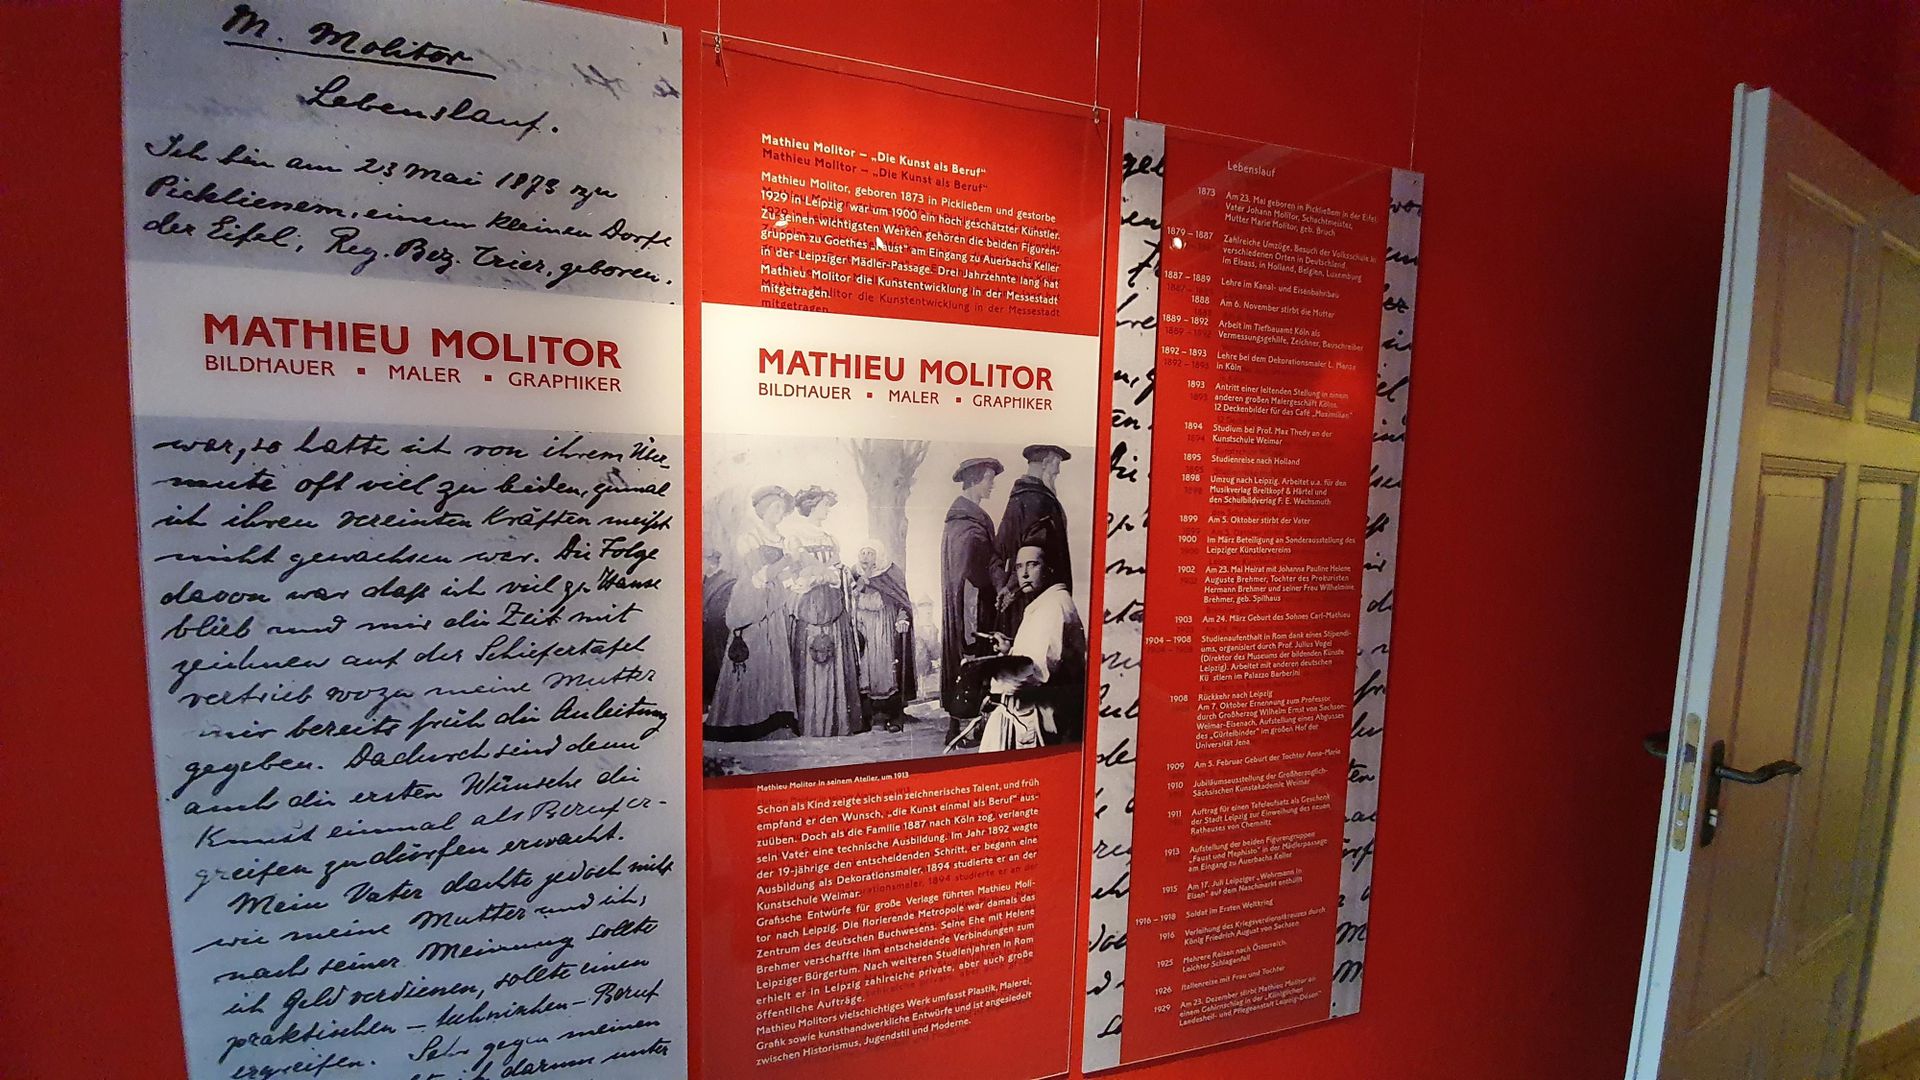 M. Molitor
Lebenslauf.
Ich bin am 23 Mai 1873 zu
Picklienem, einem kleinen Dorfe
der Eifel, Reg. Bez. Trier, geboren.
MATHIEU MOLITOR
BILDHAUER ▪ MALER ▪ GRAPHIKER
war, so hatte ich von ihrem Über-
mute oft viel zu leiden, zumal
ich ihren vereinten Kräften meist
nicht gewachsen war. Die Folge
davon war daß ich viel zu Hause
blieb und mir die Zeit mit
zeichnen auf der Schiefertafel
vertrieb wozu meine Mutter
mir bereits früh die Anleitung
gegeben. Dadurch sind denn
auch die ersten Wünsche die
Kunst einmal als Beruf er-
greifen zu dürfen erwacht.
Mein Vater dachte jedoch nicht
wie meine Mutter und ich,
nach seiner Meinung sollte
ich Geld verdienen, sollte einen
praktischen – technischen – Beruf
ergreifen. Sehr gegen meinen
ich darum unter
Mathieu Molitor – „Die Kunst als Beruf“
Mathieu Molitor, geboren 1873 in Pickließem und gestorbe
1929 in Leipzig war um 1900 ein hoch geschätzter Künstler.
Zu seinen wichtigsten Werken gehören die beiden Figuren-
gruppen zu Goethes „Faust“ am Eingang zu Auerbachs Keller
in der Leipziger Mädler-Passage. Drei Jahrzehnte lang hat
Mathieu Molitor die Kunstentwicklung in der Messestadt
mitgetragen.
MATHIEU MOLITOR
BILDHAUER ▪ MALER ▪ GRAPHIKER
Mathieu Molitor in seinem Atelier, um 1913
Schon als Kind zeigte sich sein zeichnerisches Talent, und früh
empfand er den Wunsch, „die Kunst einmal als Beruf“ aus-
zuüben. Doch als die Familie 1887 nach Köln zog, verlangte
sein Vater eine technische Ausbildung. Im Jahr 1892 wagte
der 19-jährige den entscheidenden Schritt, er begann eine
Ausbildung als Dekorationsmaler, 1894 studierte er an der
Kunstschule Weimar.
Grafische Entwürfe für große Verlage führten Mathieu Moli-
tor nach Leipzig. Die florierende Metropole war damals das
Zentrum des deutschen Buchwesens. Seine Ehe mit Helene
Brehmer verschaffte ihm entscheidende Verbindungen zum
Leipziger Bürgertum. Nach weiteren Studienjahren in Rom
erhielt er in Leipzig zahlreiche private, aber auch große
öffentliche Aufträge.
Mathieu Molitors vielschichtiges Werk umfasst Plastik, Malerei,
Grafik sowie kunsthandwerkliche Entwürfe und ist angesiedelt
zwischen Historismus, Jugendstil und Moderne.
Lebenslauf
1873 Am 23. Mai geboren in Pickließem in der Eifel
Vater Johann Molitor, Schachtmeister,
Mutter Marie Molitor, geb. Bruch
1879 – 1887 Zahlreiche Umzüge, Besuch der Volksschule in
verschiedenen Orten in Deutschland,
im Elsass, in Holland, Belgien, Luxemburg
1887 – 1889 Lehre im Kanal- und Eisenbahnbau
1888 Am 6. November stirbt die Mutter
1889 – 1892 Arbeit im Tiefbauamt Köln als
Vermessungsgehilfe, Zeichner, Bauschreiber
1892 – 1893 Lehre bei dem Dekorationsmaler L. Manse
in Köln
1893 Antritt einer leitenden Stellung in einem
anderen großen Malergeschäft Kölns,
12 Deckenbilder für das Café „Maximilian“
1894 Studium bei Prof. Max Thedy an der
Kunstschule Weimar
1895 Studienreise nach Holland
1898 Umzug nach Leipzig. Arbeitet u.a. für den
Musikverlag Breitkopf & Härtel und
den Schulbildverlag F. E. Wachsmuth
1899 Am 5. Oktober stirbt der Vater
1900 Im März Beteiligung an Sonderausstellung des
Leipziger Künstlervereins
1902 Am 23. Mai Heirat mit Johanna Pauline Helene
Auguste Brehmer, Tochter des Prokuristen
Hermann Brehmer und seiner Frau Wilhelmine
Brehmer, geb. Spilhaus
1903 Am 24. März Geburt des Sohnes Carl-Mathieu
1904 – 1908 Studienaufenthalt in Rom dank eines Stipendi-
ums, organisiert durch Prof. Julius Vogel
(Direktor des Museums der bildenden Künste
Leipzig). Arbeitet mit anderen deutschen
Kü stlern im Palazzo Barberini
1908 Rückkehr nach Leipzig
Am 7. Oktober Ernennung zum Professor
durch Großherzog Wilhelm Ernst von Sachsen-
Weimar-Eisenach, Aufstellung eines Abgusses
des „Gürtelbinder“ im großen Hof der
Universität Jena
1909 Am 5. Februar Geburt der Tochter Anna-Marie
1910 Jubiläumsausstellung der Großherzoglich-
Sächsischen Kunstakademie Weimar
1911 Auftrag für einen Tafelaufsatz als Geschenk
der Stadt Leipzig zur Einweihung des neuen
Rathauses von Chemnitz
1913 Aufstellung der beiden Figurengruppen
„Faust und Mephisto“ in der Mädlerpassage
am Eingang zu Auerbachs Keller
1915 Am 17. Juli Leipziger „Wehrmann in
Eisen“ auf dem Naschmarkt enthüllt
1916 – 1918 Soldat im Ersten Weltkrieg
1916 Verleihung des Kriegsverdienstkreuzes durch
König Friedrich August von Sachsen
1925 Mehrere Reisen nach Österreich
Leichter Schlaganfall
1926 Italienreise mit Frau und Tochter
1929 Am 23. Dezember stirbt Mathieu Molitor an
einem Gehirnschlag in der „Königlichen
Landesheil- und Pflegeanstalt Leipzig-Dösen“